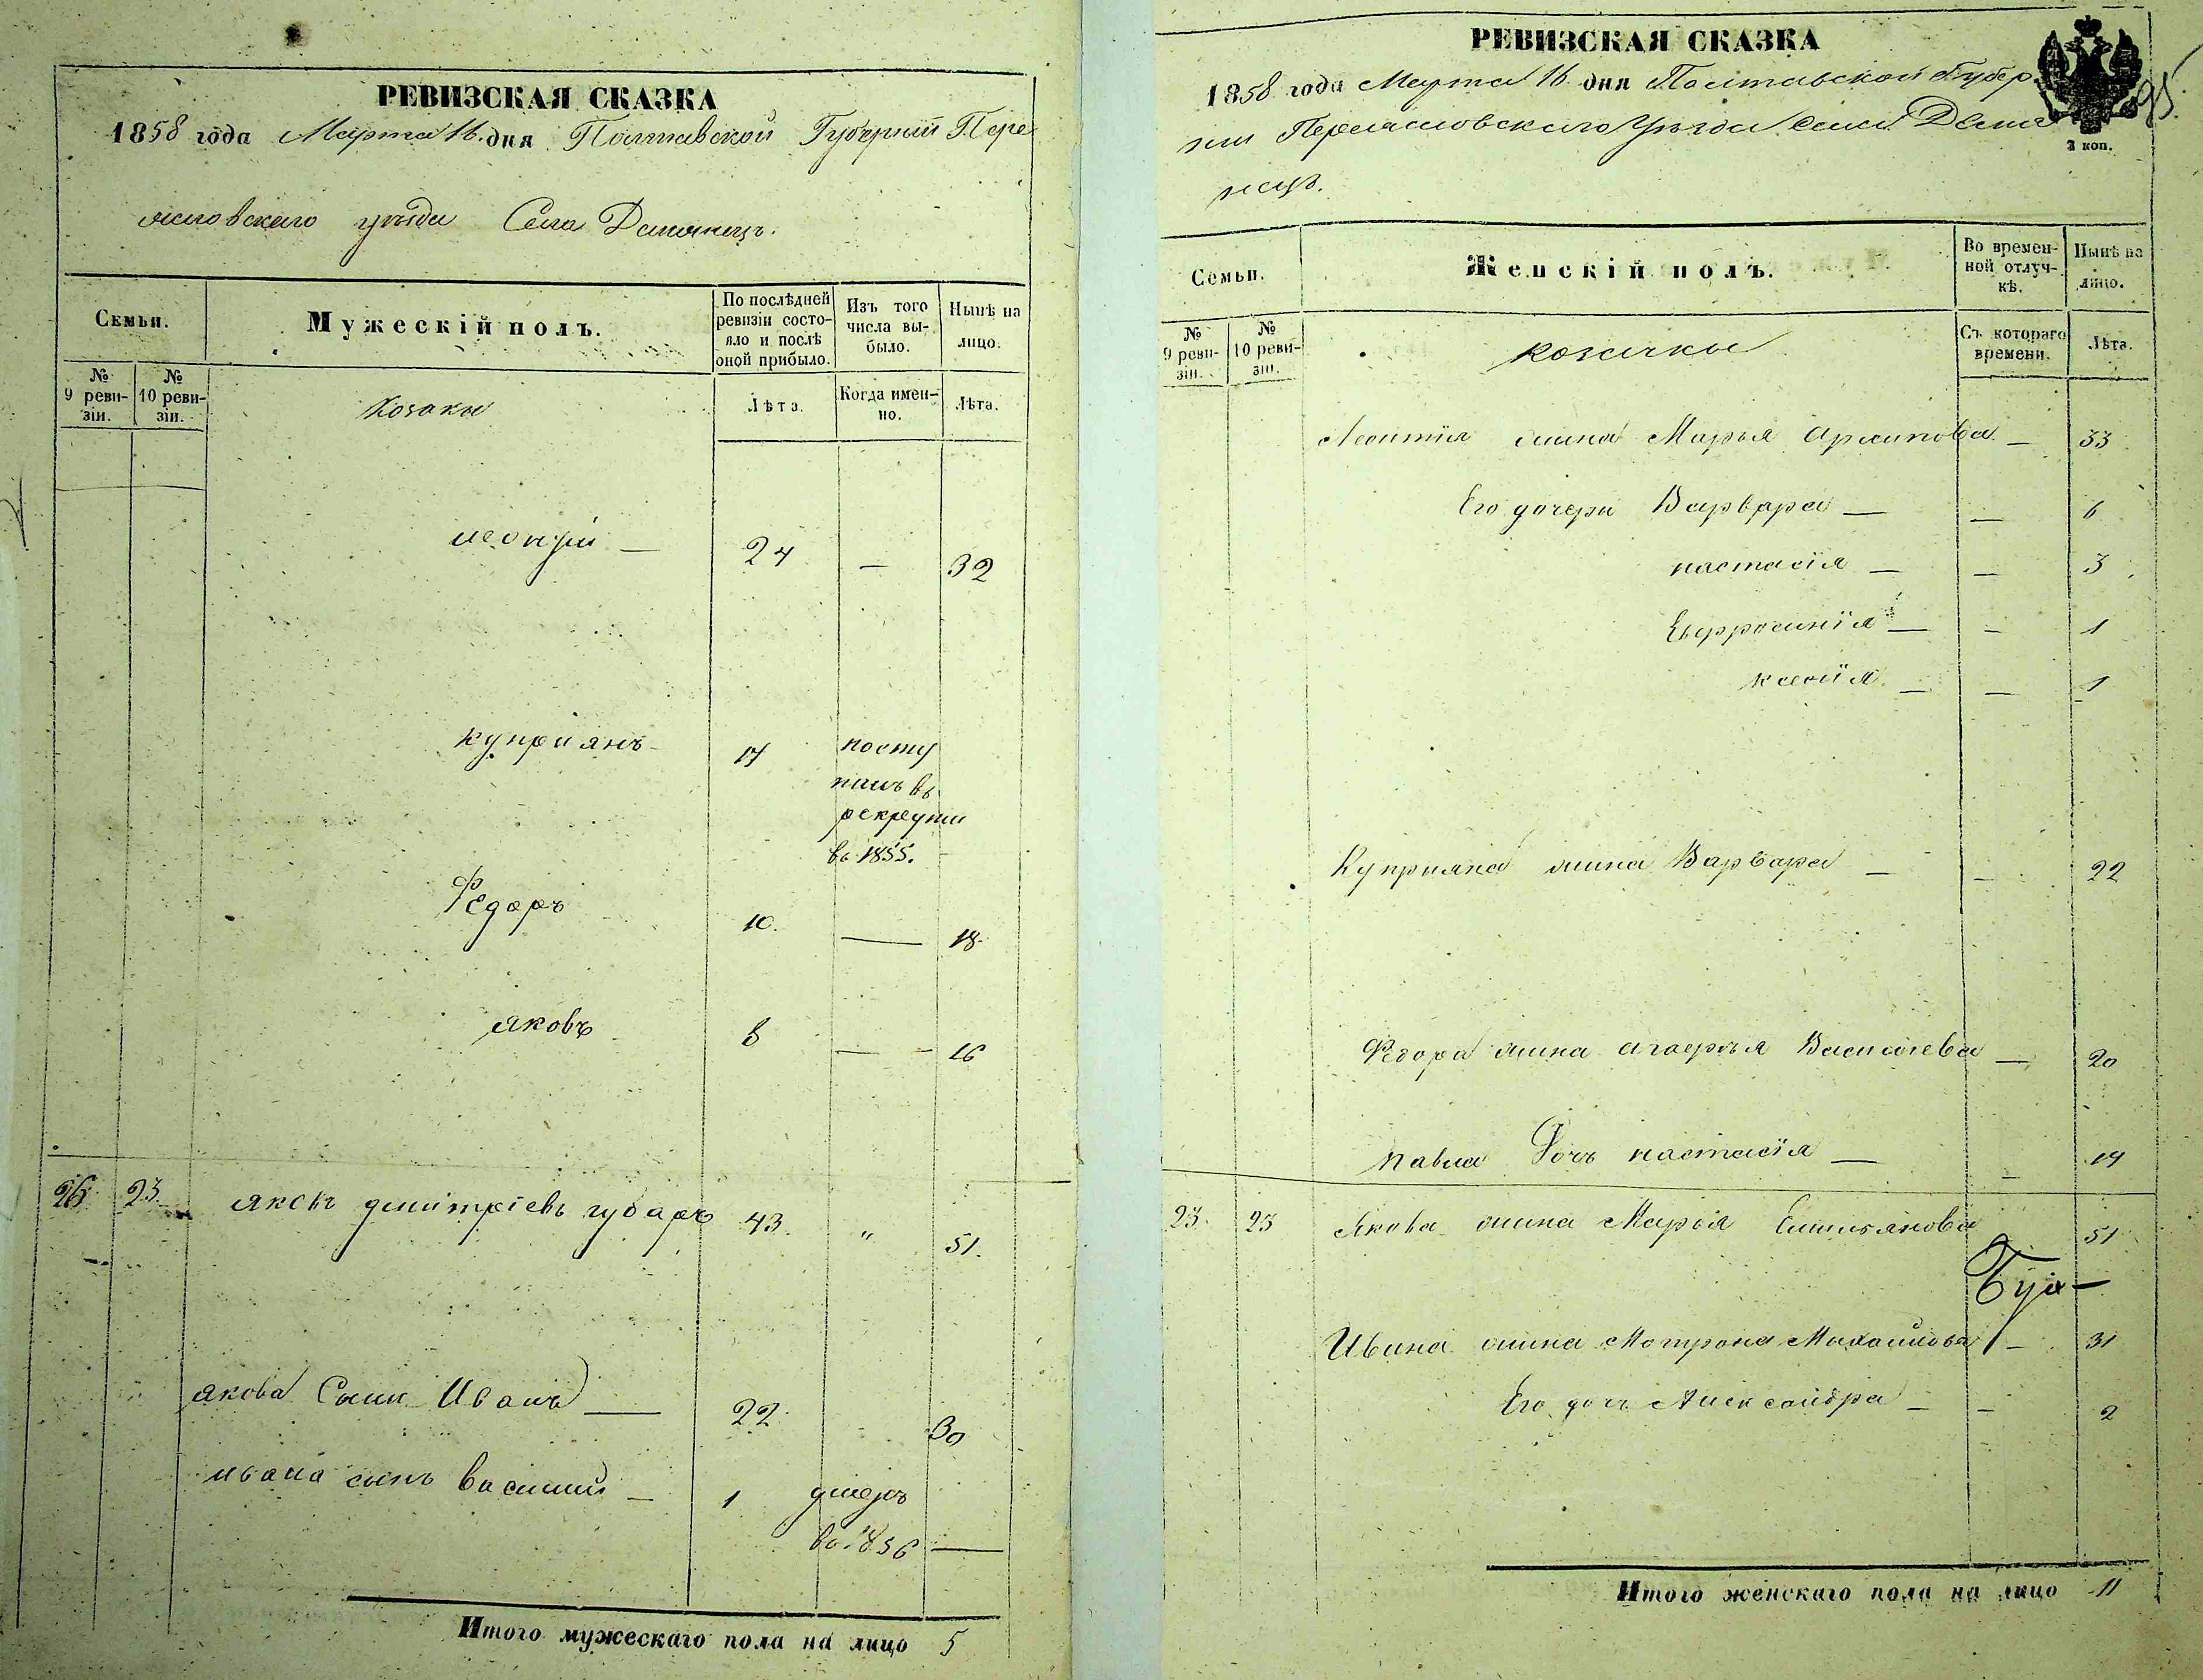 РЕВИЗСКАЯ СКАЗКА
1858 года Марта 16. дня Полтавской Губерніи Пере
яславскаго уѣзда Села
Семьи.
Мужескій полъ.
По послѣдней ревизіи состо-
яло и послѣ оной прибыло.
Изъ того числа вы-
было.
Нынѣ на лицо.
№ 9 реви-
зіи.
№ 10 реви-
зіи.
Козаки
Лѣта.
Когда имен-
но.
Лѣта.
леонтій — 24 — 32
куприянъ 17 посту
пилъ въ
рекруты
въ 1855.
Федоръ 10. — 18.
яковъ 8 — 16
26 23 яковъ дмитріевъ губарь 43. " 51.
якова Сынъ Иванъ — 22. 30
ивана сынъ василий — 1 умеръ
въ 1856 —
Итого мужескаго пола на лицо 5
РЕВИЗСКАЯ СКАЗКА
95.
1858 года Марта 16. дня Полтавской Губер
ніи Переяславскаго Уѣзда Села
2 коп.
Семьи.
Женскій полъ.
Во времен-
ной отлуч-
кѣ.
Нынѣ на лицо.
№ 9 реви-
зіи.
№ 10 реви-
зіи.
козачки
Съ котораго времени.
Лѣта.
Леонтія жена Марья Архипова — 33
Его дочери Варвара — — 6
настасія — — 3
Ефросинія — — 1
ксенія — — 1
Куприяна жена Варвара — — 22
Федора жена Васильева — 20
Павла Дочь настасія — — 14
23. 23 Якова жена Марія Емильянова 51
Ивана жена Мотрона Михайлова — 31
Его дочь Александра — — 2
Итого женскаго пола на лицо 11